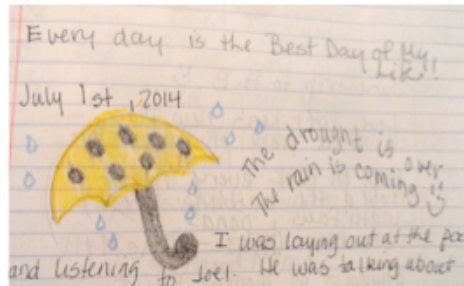 Every day is the Best Day of My
Life!
July 1st, 2014
The drought is over
The rain is coming!!
I was laying out at the
and listening to Joel. He was talking about